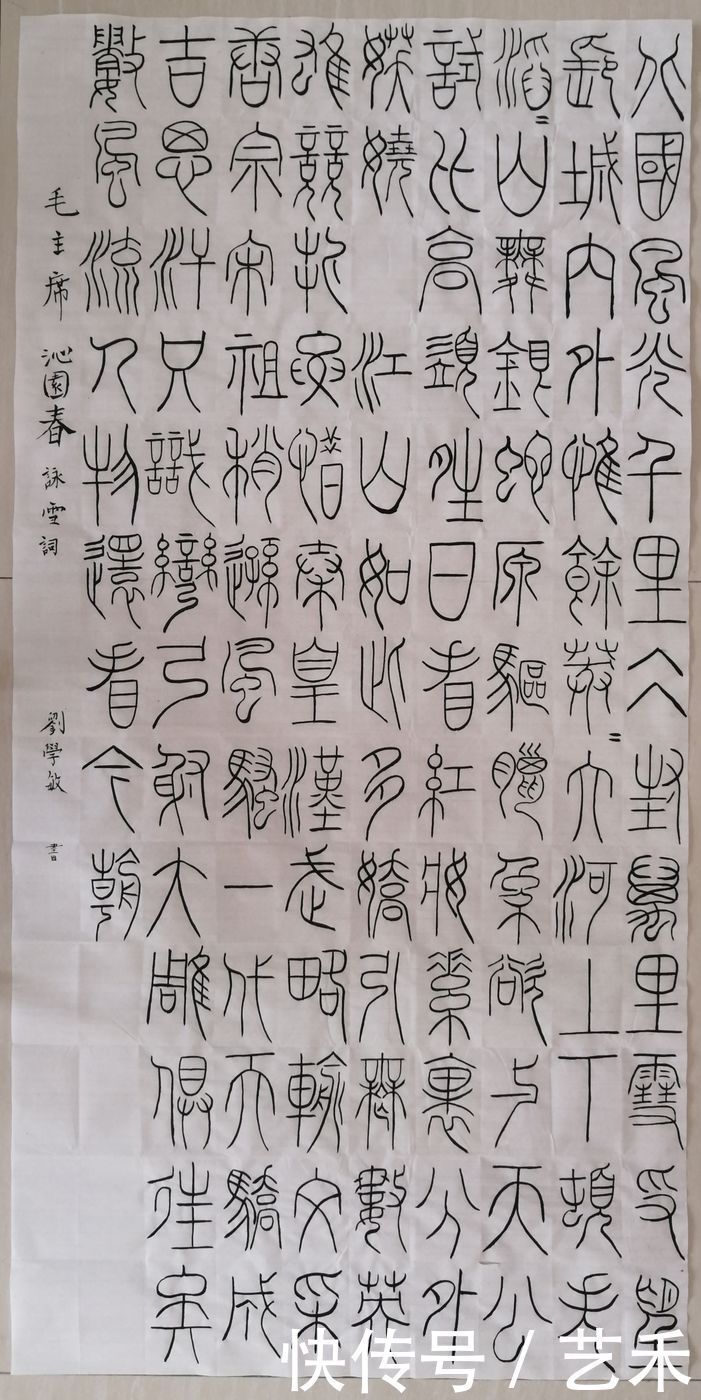 北國風光千里冰封萬里雪望
長城內外惟餘莽=大河上下頓失
滔=山舞銀蛇原驅臘象欲与天公
試比高須晴日看紅妝素裹分外
妖嬈 江山如此多嬌引無數英
雄競折腰惜秦皇漢武略輸文采
唐宗宋祖稍遜風騷一代天驕成
吉思汗只識彎弓射大雕俱往矣
數風流人物還看今朝
毛主席 沁園春 詠雪詞 劉學敏 書
快传号 / 艺禾